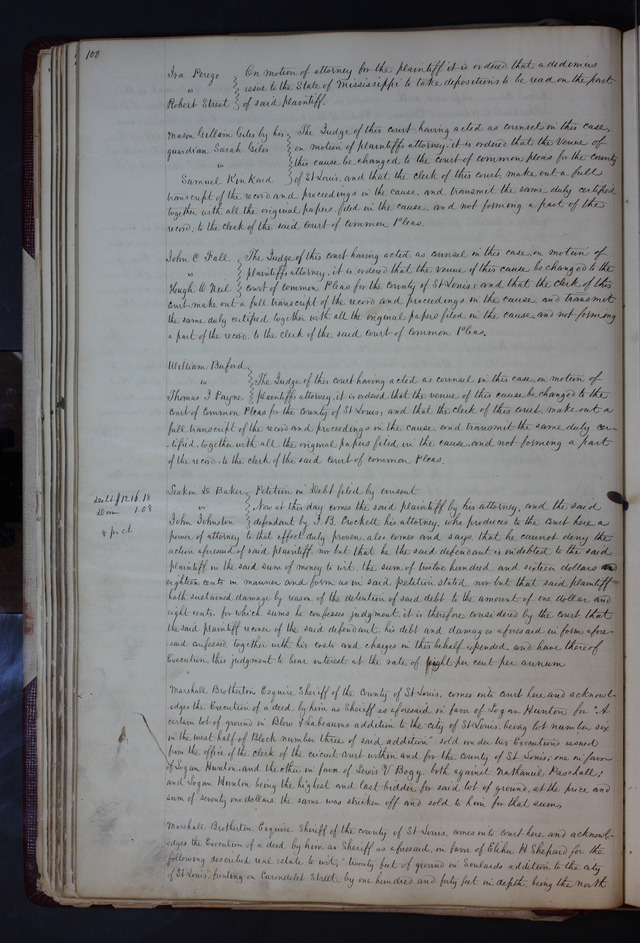 100
Ira Perego
"
Robert Street
On motion of attorney for the plaintiff it is ordered that a dedimus
issue to the State of Mississippi to take depositions to be read on the part
of said plaintiff.
Mason Gillam Giles by his
guardian Sarah Giles
"
Samuel Kinkaid
The Judge of this court having acted as counsel in this case,
on motion of plaintiffs attorney it is ordered that the venue of
this cause be changed to the court of common pleas for the county
of St Louis, and that the clerk of this court make out a full
transcript of the record and proceedings in the cause and transmit the same duly certified
together with all the original papers filed in the cause and not forming a part of the
record, to the clerk of the said court of common Pleas.
John C Fall
"
Hugh O Neil
The Judge of this court having acted as counsel in this case on motion of
plaintiffs attorney, it is ordered that the venue of this cause be changed to the
court of common Pleas for the county of St Louis and that the clerk of this
court make out a full transcript of the record and proceedings in the cause and transmit
the same duly certified together with all the original papers filed in the cause and not forming
a part of the record to the clerk of the said court of common Pleas.
William Buford
"
Thomas J Payne
The Judge of this court having acted as counsel in this case, on motion of
plaintiffs attorney, it is ordered that the venue of this cause be changed to the
court of common Pleas for the county of St Louis, and that the clerk of this court make out a
full transcript of the record and proceedings in the cause and transmit the same duly cer-
-tified, together with all the original papers filed in the cause and not forming a part
of the record to the clerk of the said court of common Pleas.
Debt $1216.18
Dam 1.08
8 pr ct
D Baker
"
John Johnston
Petition in Debt filed by consent
Now at this day comes the said plaintiff by his attorney, and the said
defendant by J. B. Crockett his attorney, who produces to the court here a
power of attorney to that effect duly proven, also comes and says that he cannot deny the
action aforesaid of said plaintiff nor but that he the said defendant is indebted to the said
plaintiff in the said sum of money to wit, the sum of twelve hundred and sixteen dollars and
eighteen cents in manner and form as in said petition stated, nor but that said plaintiff
hath sustained damage by reason of the detention of said debt to the amount of one dollar and
eight cents, for which sums he confesses judgment, it is therefore considered by the court that
the said plaintiff recover of the said defendant, his debt and damages aforesaid in form afore-
said confessed together with his costs and charges in this behalf expended and have thereof
Execution, this judgment to bear interest at the rate of eight per cent per annum
Marshall Brotherton Esquire Sheriff of the County of St Louis, comes into court here and acknowl-
edges the Execution of a deed by him as Sheriff as aforesaid in favor of Logan Hunton for "A
certain lot of ground in Blow & Labeaumes addition to the city of St Louis, being lot number six
in the west half of Block number three of said addition" sold under two Executions issued
from the office of the clerk of the circuit court within and for the county of St Louis, one in favor
of Logan Hunton, and the other in favor of Lewis V Bogy both against Nathaniel Paschall;
and Logan Hunton being the highest and last bidder for said lot of ground, at the price and
sum of seventy one dollars the same was stricken off and sold to him for that sum,
Marshall Brotherton Esquire Sheriff of the county of St Louis, comes into court here and acknowl-
edges the Execution of a deed by him as Sheriff as aforesaid, in favor of Elihu H Shepard for the
following described real estate to wit; "twenty feet of ground in Soulards addition to the city
of St Louis, fronting on Carondelet Street, by one hundred and forty feet in depth, being the north